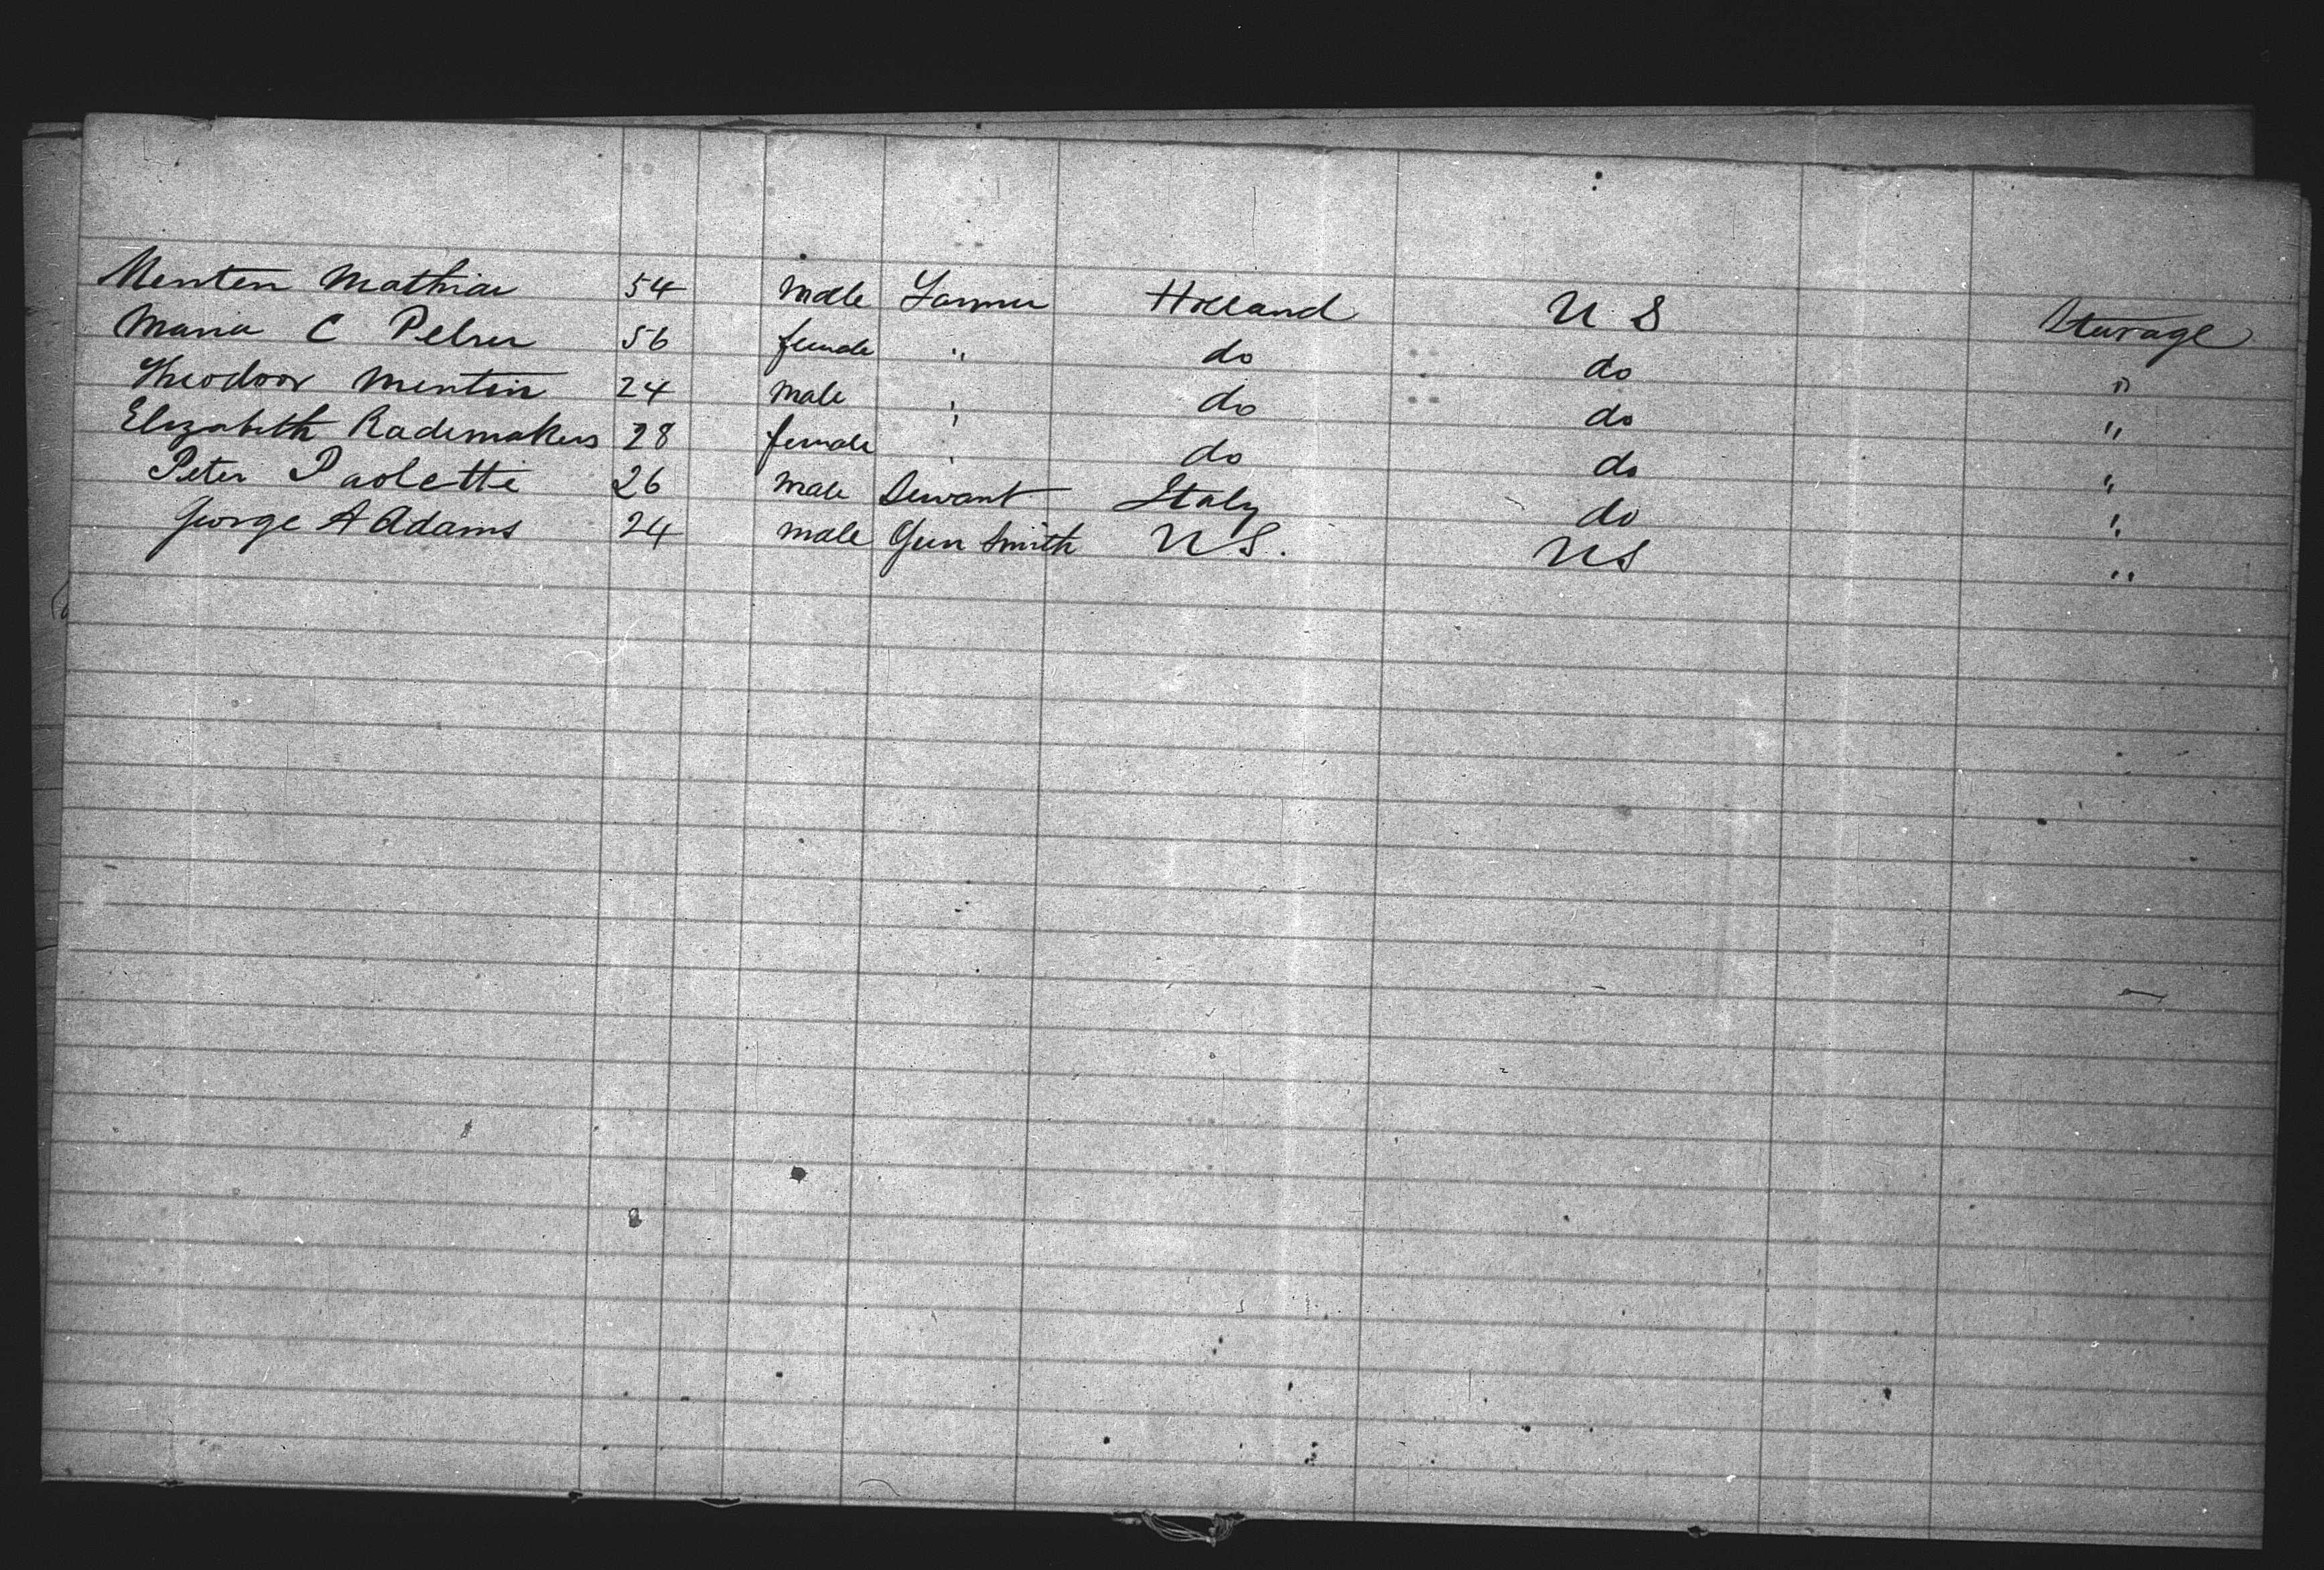 Menten Mathias 54 male Farmer Holland U S Steerage
Maria C Pelser 56 female " do do "
Theodoor Menten 24 male " do do "
Elizabeth Rademakers 28 female " do do "
Peter Paolette 26 male Servant Italy do "
George A Adams 24 male Gun Smith U S. U S "